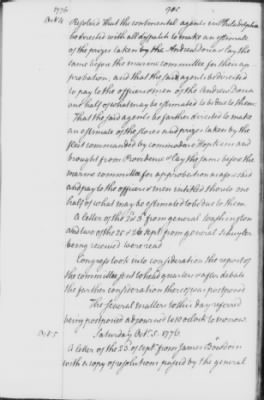 1776
Oct. 4
Resolved That the continental agents in Philadelphia
be directed with all dispatch to make an estimate
of the prizes taken by the Andrea Doria & lay the
same before the marine committee for their ap
probation, and that the said agents be directed
to pay to the officers & men of the Andrea Doria
one half of what may be estimated to be due to them.
That the said agents be farther directed to make
an estimate of the stores and prizes taken by the
fleet commanded by commodore Hopkins and
brought from Providence & lay the same before the
marine committee for approbation as aforesaid
and pay to the officers & men entitled thereto one
half of what may be estimated to be due to them.
A letter of the 3d from general Washington
and two of the 25 & 26 Sept. from general Schuyler
being received were read
Congress took into consideration the report of
the committee sent to head quarters & after debate
the farther consideration thereof was postponed
The several matters to this day referred
being postponed adjourned to 10 oClock to morrow
Oct. 5
Saturday Oct. 5. 1776.
A letter of the 23d of Sept. from James Bowdoin
with a copy of resolutions passed by the general